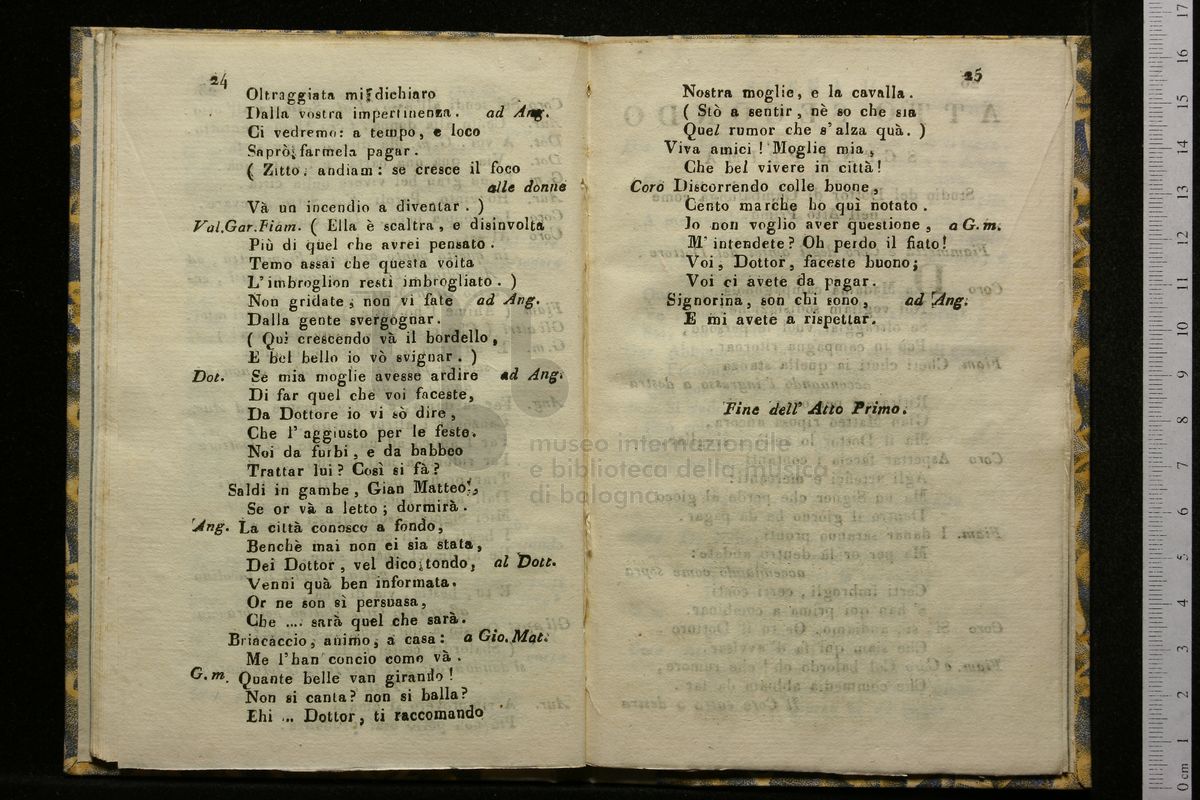 24
Oltraggiata mi dichiaro
Dalla vostra impertinenza. ad Ang.
Ci vedremo: a tempo, e loco
Saprò farmela pagar.
( Zitto, andiam: se cresce il foco
alle donne
Và un incendio a diventar. )
Val.Gar.Fiam. ( Ella è scaltra, e disinvolta
Più di quel che avrei pensato.
Temo assai che questa volta
L'imbroglion resti imbrogliato. )
Non gridate, non vi fate ad Ang.
Dalla gente svergognar.
( Qui crescendo và il bordello,
E bel bello io vò svignar. )
Dot. Se mia moglie avesse ardire ad Ang.
Di far quel che voi faceste,
Da Dottore io vi sò dire,
Che l'aggiusto per le feste.
Noi da furbi, e da babbeo
Trattar lui? Così si fà?
Saldi in gambe, Gian Matteo,
Se or và a letto; dormirà.
Ang. La città conosco a fondo,
Benchè mai non ci sia stata,
Dei Dottor, vel dico tondo, al Dott.
Venni quà ben informata.
Or ne son sì persuasa,
Che .... sarà quel che sarà.
Briacaccio, animo, a casa: a Gio. Mat.
Me l'han concio como và.
G.m. Quante belle van girando!
Non si canta? non si balla?
Ehi ... Dottor, ti raccomando
25
Nostra moglie, e la cavalla.
( Stò a sentir, nè so che sia
Quel rumor che s'alza quà. )
Viva amici! Moglie mia,
Che bel vivere in città!
Coro Discorrendo colle buone,
Cento marche ho quì notato.
Io non voglio aver questione, a G.m.
M'intendete? Oh perdo il fiato!
Voi, Dottor, faceste buono;
Voi ci avete da pagar.
Signorina, son chi sono, ad Ang.
E mi avete a rispettar.
Fine dell' Atto Primo.
museo internazionale
e biblioteca della musica
di bologna
0 cm 1 2 3 4 5 6 7 8 9 10 11 12 13 14 15 16 17